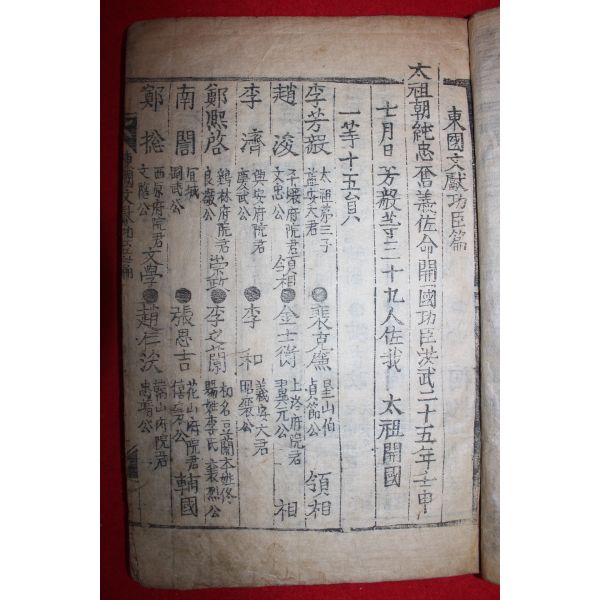 東國文獻功臣篇
太祖朝純忠奮義佐命開國功臣洪武二十五年壬申
七月日芳毅等三十九人佐我 太祖開國
一等十五員
李芳毅 太祖第三子 益安大君 ●裵克廉 星山伯 貞節公 領相
趙浚 平壤府院君 文忠公 領相 ●金士衡 上洛府院君 翼元公 相
李濟 興安府院君 景武公 ●李和 義安大君 昭襄公
鄭熙啓 鷄林府院君 良景公 崇政 ●李之蘭 初名豆蘭本姓佟 賜姓李氏 襄烈公
南誾 宜城 剛武公 ●張思吉 花山府院君 僖襄公 輔國
鄭摠 西原府院君 文愍公 文學 ●趙仁沃 漢山府院君 忠靖公
東國文獻功臣篇